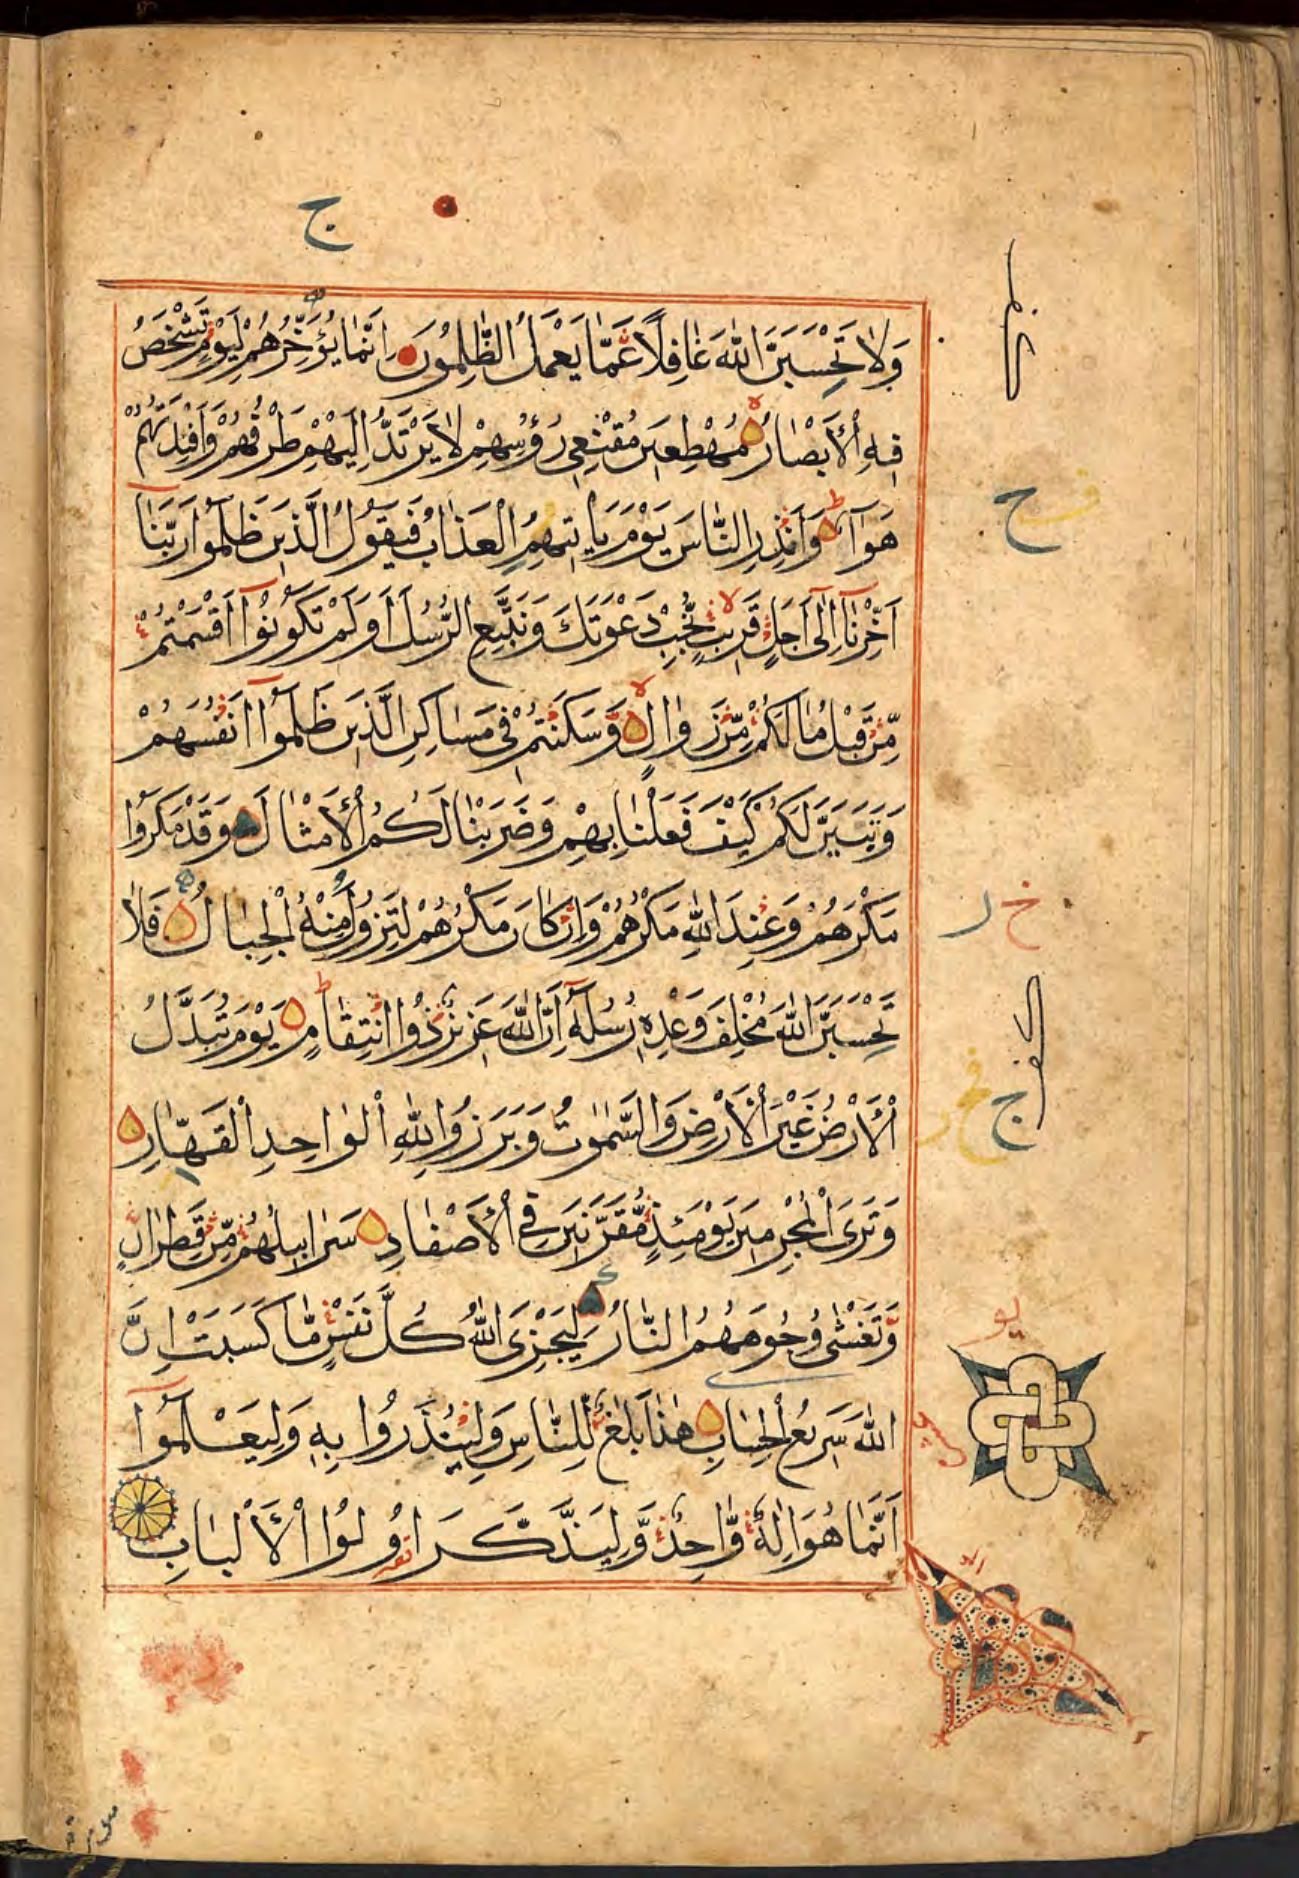 وَلَا تَحْسَبَنَّ اللّٰهَ غَافِلًا عَمَّا يَعْمَلُ الظّٰلِمُونَ اِنَّمَا يُؤَخِّرُهُمْ لِيَوْمٍ تَشْخَصُ
فِيهِ الْاَبْصَارُ مُهْطِعِينَ مُقْنِعِي رُؤُسِهِمْ لَا يَرْتَدُّ اِلَيْهِمْ طَرْفُهُمْ وَاَفْئِدَتُهُمْ
هَوَآءٌ وَاَنْذِرِ النَّاسَ يَوْمَ يَاْتِيهِمُ الْعَذَابُ فَيَقُولُ الَّذِينَ ظَلَمُوا رَبَّنَآ
اَخِّرْنَآ اِلٰى اَجَلٍ قَرِيبٍ نُّجِبْ دَعْوَتَكَ وَنَتَّبِعِ الرُّسُلَ اَوَلَمْ تَكُونُوٓا اَقْسَمْتُمْ
مِّنْ قَبْلُ مَا لَكُمْ مِّنْ زَوَالٍ وَّسَكَنْتُمْ فِي مَسَاكِنِ الَّذِينَ ظَلَمُوٓا اَنْفُسَهُمْ
وَتَبَيَّنَ لَكُمْ كَيْفَ فَعَلْنَا بِهِمْ وَضَرَبْنَا لَكُمُ الْاَمْثَالَ وَقَدْ مَكَرُوا
مَكْرَهُمْ وَعِنْدَ اللّٰهِ مَكْرُهُمْ وَاِنْ كَانَ مَكْرُهُمْ لِتَزُولَ مِنْهُ الْجِبَالُ فَلَا
تَحْسَبَنَّ اللّٰهَ مُخْلِفَ وَعْدِهِ رُسُلَهُٓ اِنَّ اللّٰهَ عَزِيزٌ ذُوا انْتِقَامٍ يَوْمَ تُبَدَّلُ
الْاَرْضُ غَيْرَ الْاَرْضِ وَالسَّمٰوٰتُ وَبَرَزُوا لِلّٰهِ الْوَاحِدِ الْقَهَّارِ
وَتَرَى الْمُجْرِمِينَ يَوْمَئِذٍ مُّقَرَّنِينَ فِي الْاَصْفَادِ سَرَابِيلُهُمْ مِّنْ قَطِرَانٍ
وَّتَغْشٰى وُجُوهَهُمُ النَّارُ لِيَجْزِيَ اللّٰهُ كُلَّ نَفْسٍ مَّا كَسَبَتْ اِنَّ
اللّٰهَ سَرِيعُ الْحِسَابِ هٰذَا بَلٰغٌ لِّلنَّاسِ وَلِيُنْذَرُوا بِهِ وَلِيَعْلَمُوٓا
اَنَّمَا هُوَ اِلٰهٌ وَّاحِدٌ وَّلِيَذَّكَّرَ اُولُوا الْاَلْبَابِ